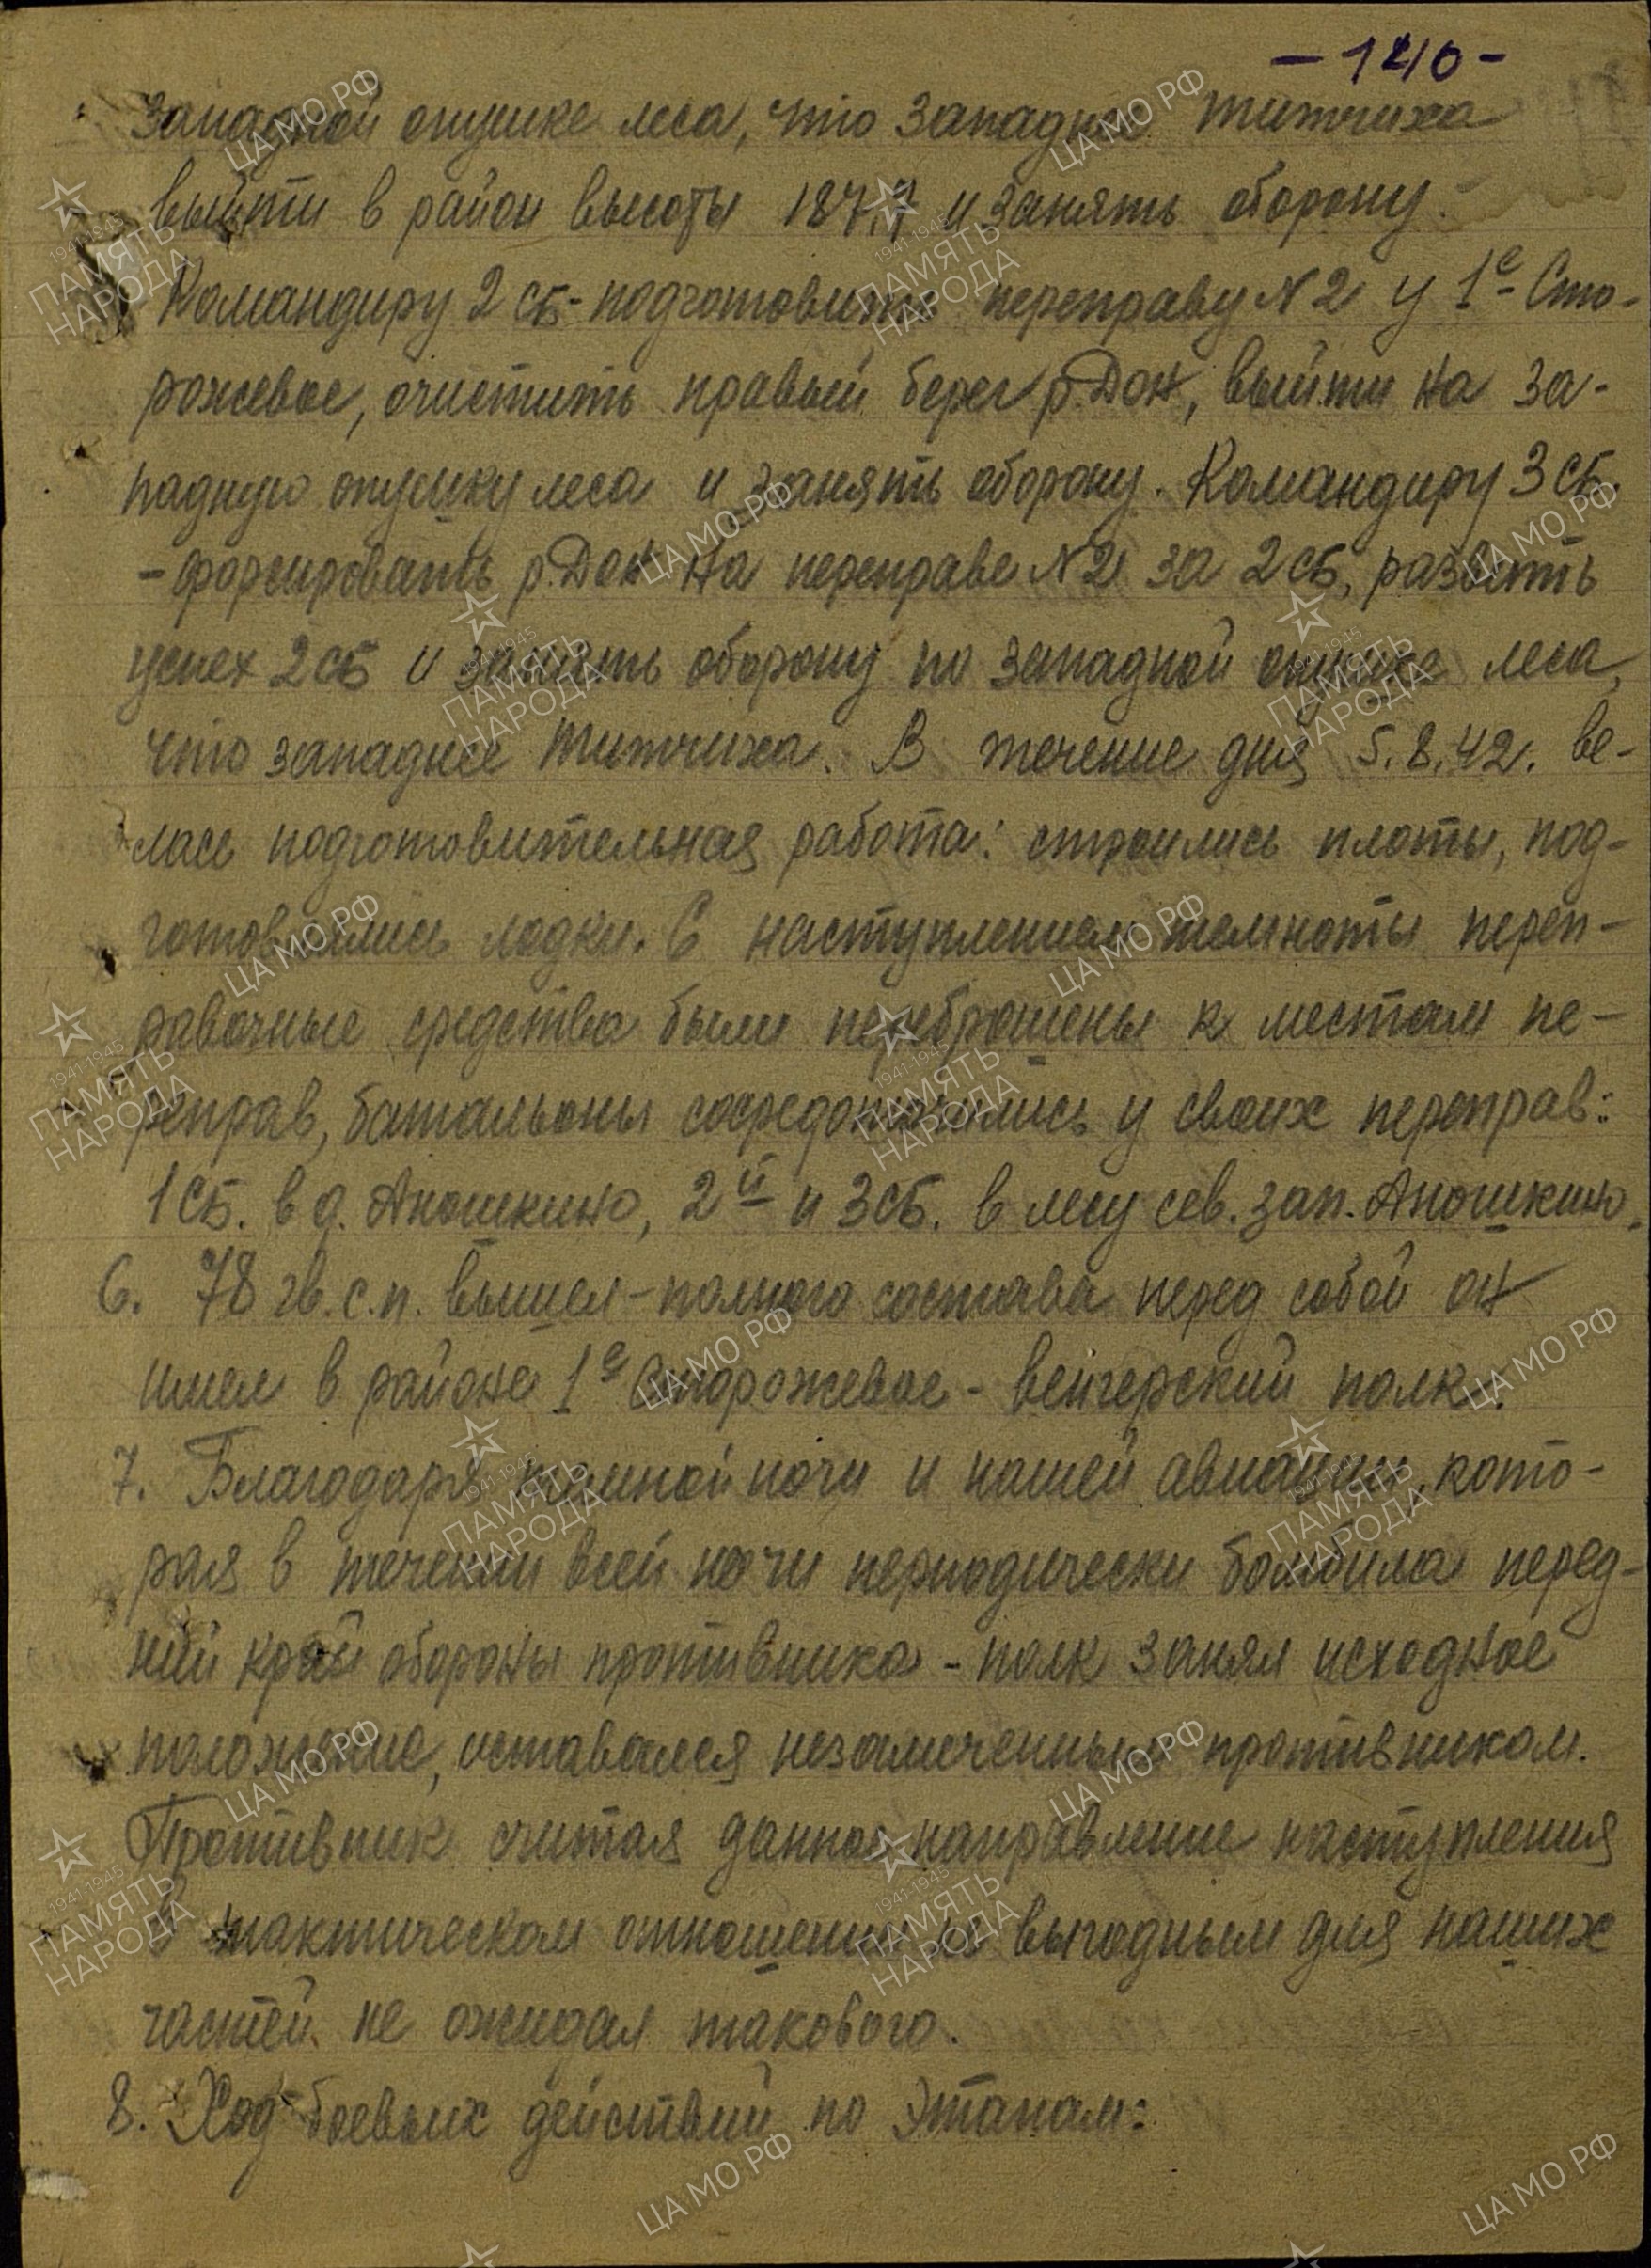 - 140 -
западной опушке леса, что западнее Титчиха
выйти в район высоты 187,7 и занять оборону.
Командиру 2 сб - подготовить переправу N 2 у 1е Сто-
рожевое, очистить правый берег р. Дон, выйти на за-
падную опушку леса и занять оборону. Командиру 3 сб.
- форсировать р. Дон на переправе N 2 за 2 сб, развить
успех 2 сб и занять оборону по западной опушке леса,
что западнее Титчиха. В течение дня 5.8.42. ве-
лась подготовительная работа: строились плоты, под-
готовлялись лодки. С наступлением темноты переп-
равочные средства были переброшены к местам пе-
реправ, батальоны сосредоточились у своих переправ:
1 сб. в д. Аношкино, 2й и 3 сб. в лесу сев. зап. Аношкино.
6. 78 гв. с.п. вышел - полного состава перед собой он
имел в районе 1е Сторожевое - венгерский полк.
7. Благодаря темной ночи и нашей авиации, кото-
рая в течении всей ночи периодически бомбила перед-
ний край обороны противника - полк занял исходное
положение, оставался незамеченным противником.
Противник считая данное направление наступления
в тактическом отношении не выгодным для наших
частей не ожидал такового.
8. Ход боевых действий по этапам:
ЦА МО РФ
1941-1945
ПАМЯТЬ
НАРОДА